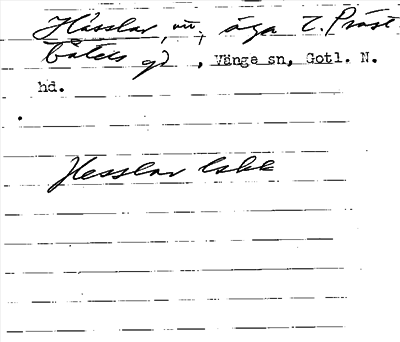 Hässlar, m., äga t. Präst
båtels gd, Vänge sn, Gotl. N.
hd.
Hesslar lskk